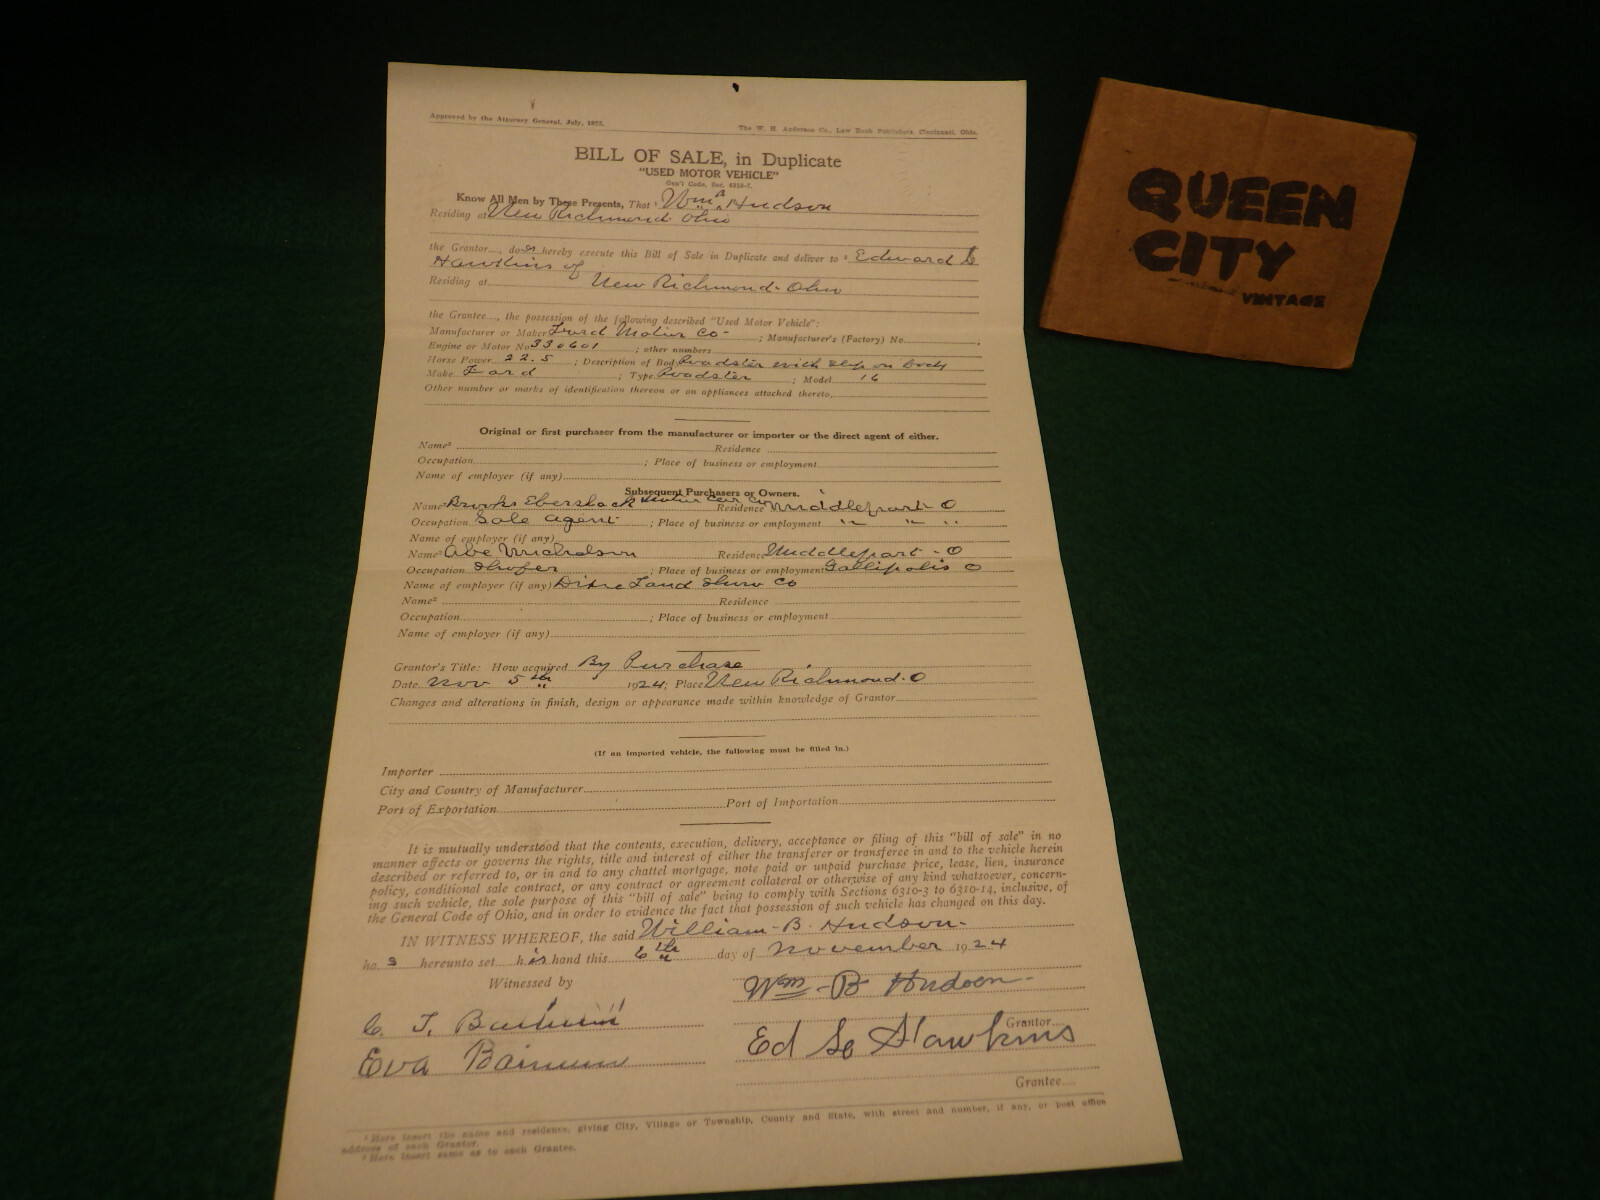 Approved by the Attorney General, July, 1923. The W. H. Anderson Co., Law Book Publishers, Cincinnati, Ohio.
BILL OF SALE, in Duplicate
"USED MOTOR VEHICLE"
Gen'l Code, Sec. 6310-7.
Know All Men by These Presents, That ¹ Wm B Hudson
Residing at New Richmond Ohio
the Grantor...., does hereby execute this Bill of Sale in Duplicate and deliver to ² Edward
Hawkins of
Residing at New Richmond-Ohio
the Grantee...., the possession of the following described "Used Motor Vehicle":
Manufacturer or Maker Ford Motor Co- ; Manufacturer's (Factory) No. ;
Engine or Motor No. 330601 ; other numbers
Horse Power 22.5 ; Description of Body Roadster with slip on body
Make Ford ; Type Roadster ; Model 16
Other number or marks of identification thereon or on appliances attached thereto,
Original or first purchaser from the manufacturer or importer or the direct agent of either.
Name² Residence
Occupation ; Place of business or employment
Name of employer (if any)
Subsequent Purchasers or Owners.
Name² Brooks Ebersback Motor Car Co Residence Middleport-O
Occupation Sale agent ; Place of business or employment " " "
Name of employer (if any)
Name² Abe Residence Middleport-O
Occupation Shofer ; Place of business or employment Gallipolis O
Name of employer (if any) Land Co
Name² Residence
Occupation ; Place of business or employment
Name of employer (if any)
Grantor's Title: How acquired By Purchase
Date Nov 5th 1924; Place New Richmond.O
Changes and alterations in finish, design or appearance made within knowledge of Grantor
(If an imported vehicle, the following must be filled in.)
Importer
City and Country of Manufacturer
Port of Exportation Port of Importation
It is mutually understood that the contents, execution, delivery, acceptance or filing of this "bill of sale" in no
manner affects or governs the rights, title and interest of either the transferer or transferee in and to the vehicle herein
described or referred to, or in and to any chattel mortgage, note paid or unpaid purchase price, lease, lien, insurance
policy, conditional sale contract, or any contract or agreement collateral or otherwise of any kind whatsoever, concern-
ing such vehicle, the sole purpose of this "bill of sale" being to comply with Sections 6310-3 to 6310-14, inclusive, of
the General Code of Ohio, and in order to evidence the fact that possession of such vehicle has changed on this day.
IN WITNESS WHEREOF, the said William-B. Hudson-
has hereunto set his hand this 6th day of November 1924
Witnessed by
Wm-B Hudson-
Grantor
C. T.
Ed Hawkins
Eva
Grantee....
¹ Here insert the name and residence, giving City, Village or Township, County and State, with street and number, if any, or post office
address of each Grantor.
² Here insert same as to each Grantee.
QUEEN
CITY
VINTAGE